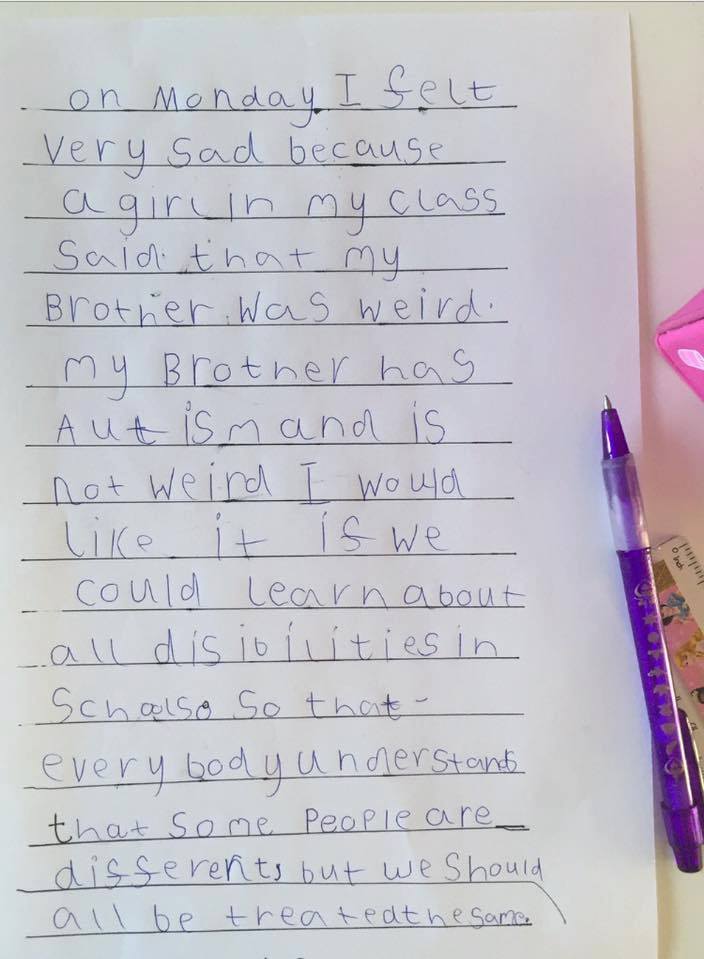 on Monday I felt
Very Sad because
a girl in my class
Said that my
Brother Was weird.
my Brother has
Autism and is
not weird I would
like it if we
could learn about
all disibilities in
so that
every body understands
that Some People are
differents but we Should
all be treated the same.
0 inch